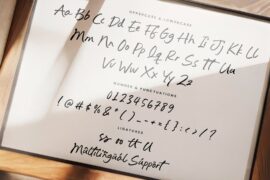 UPPERCASE & LOWERCASE
Aa Bb Cc Dd Ee Ff Gg Hh Ii Jj Kk Ll
Mm Nn Oo Pp Qq Rr Ss Tt Uu
Vv Ww Xx Yy Zz
NUMBER & PUNCTUATIONS
0123456789
LIGATURES
ss oo tt ll
Multilingual Support